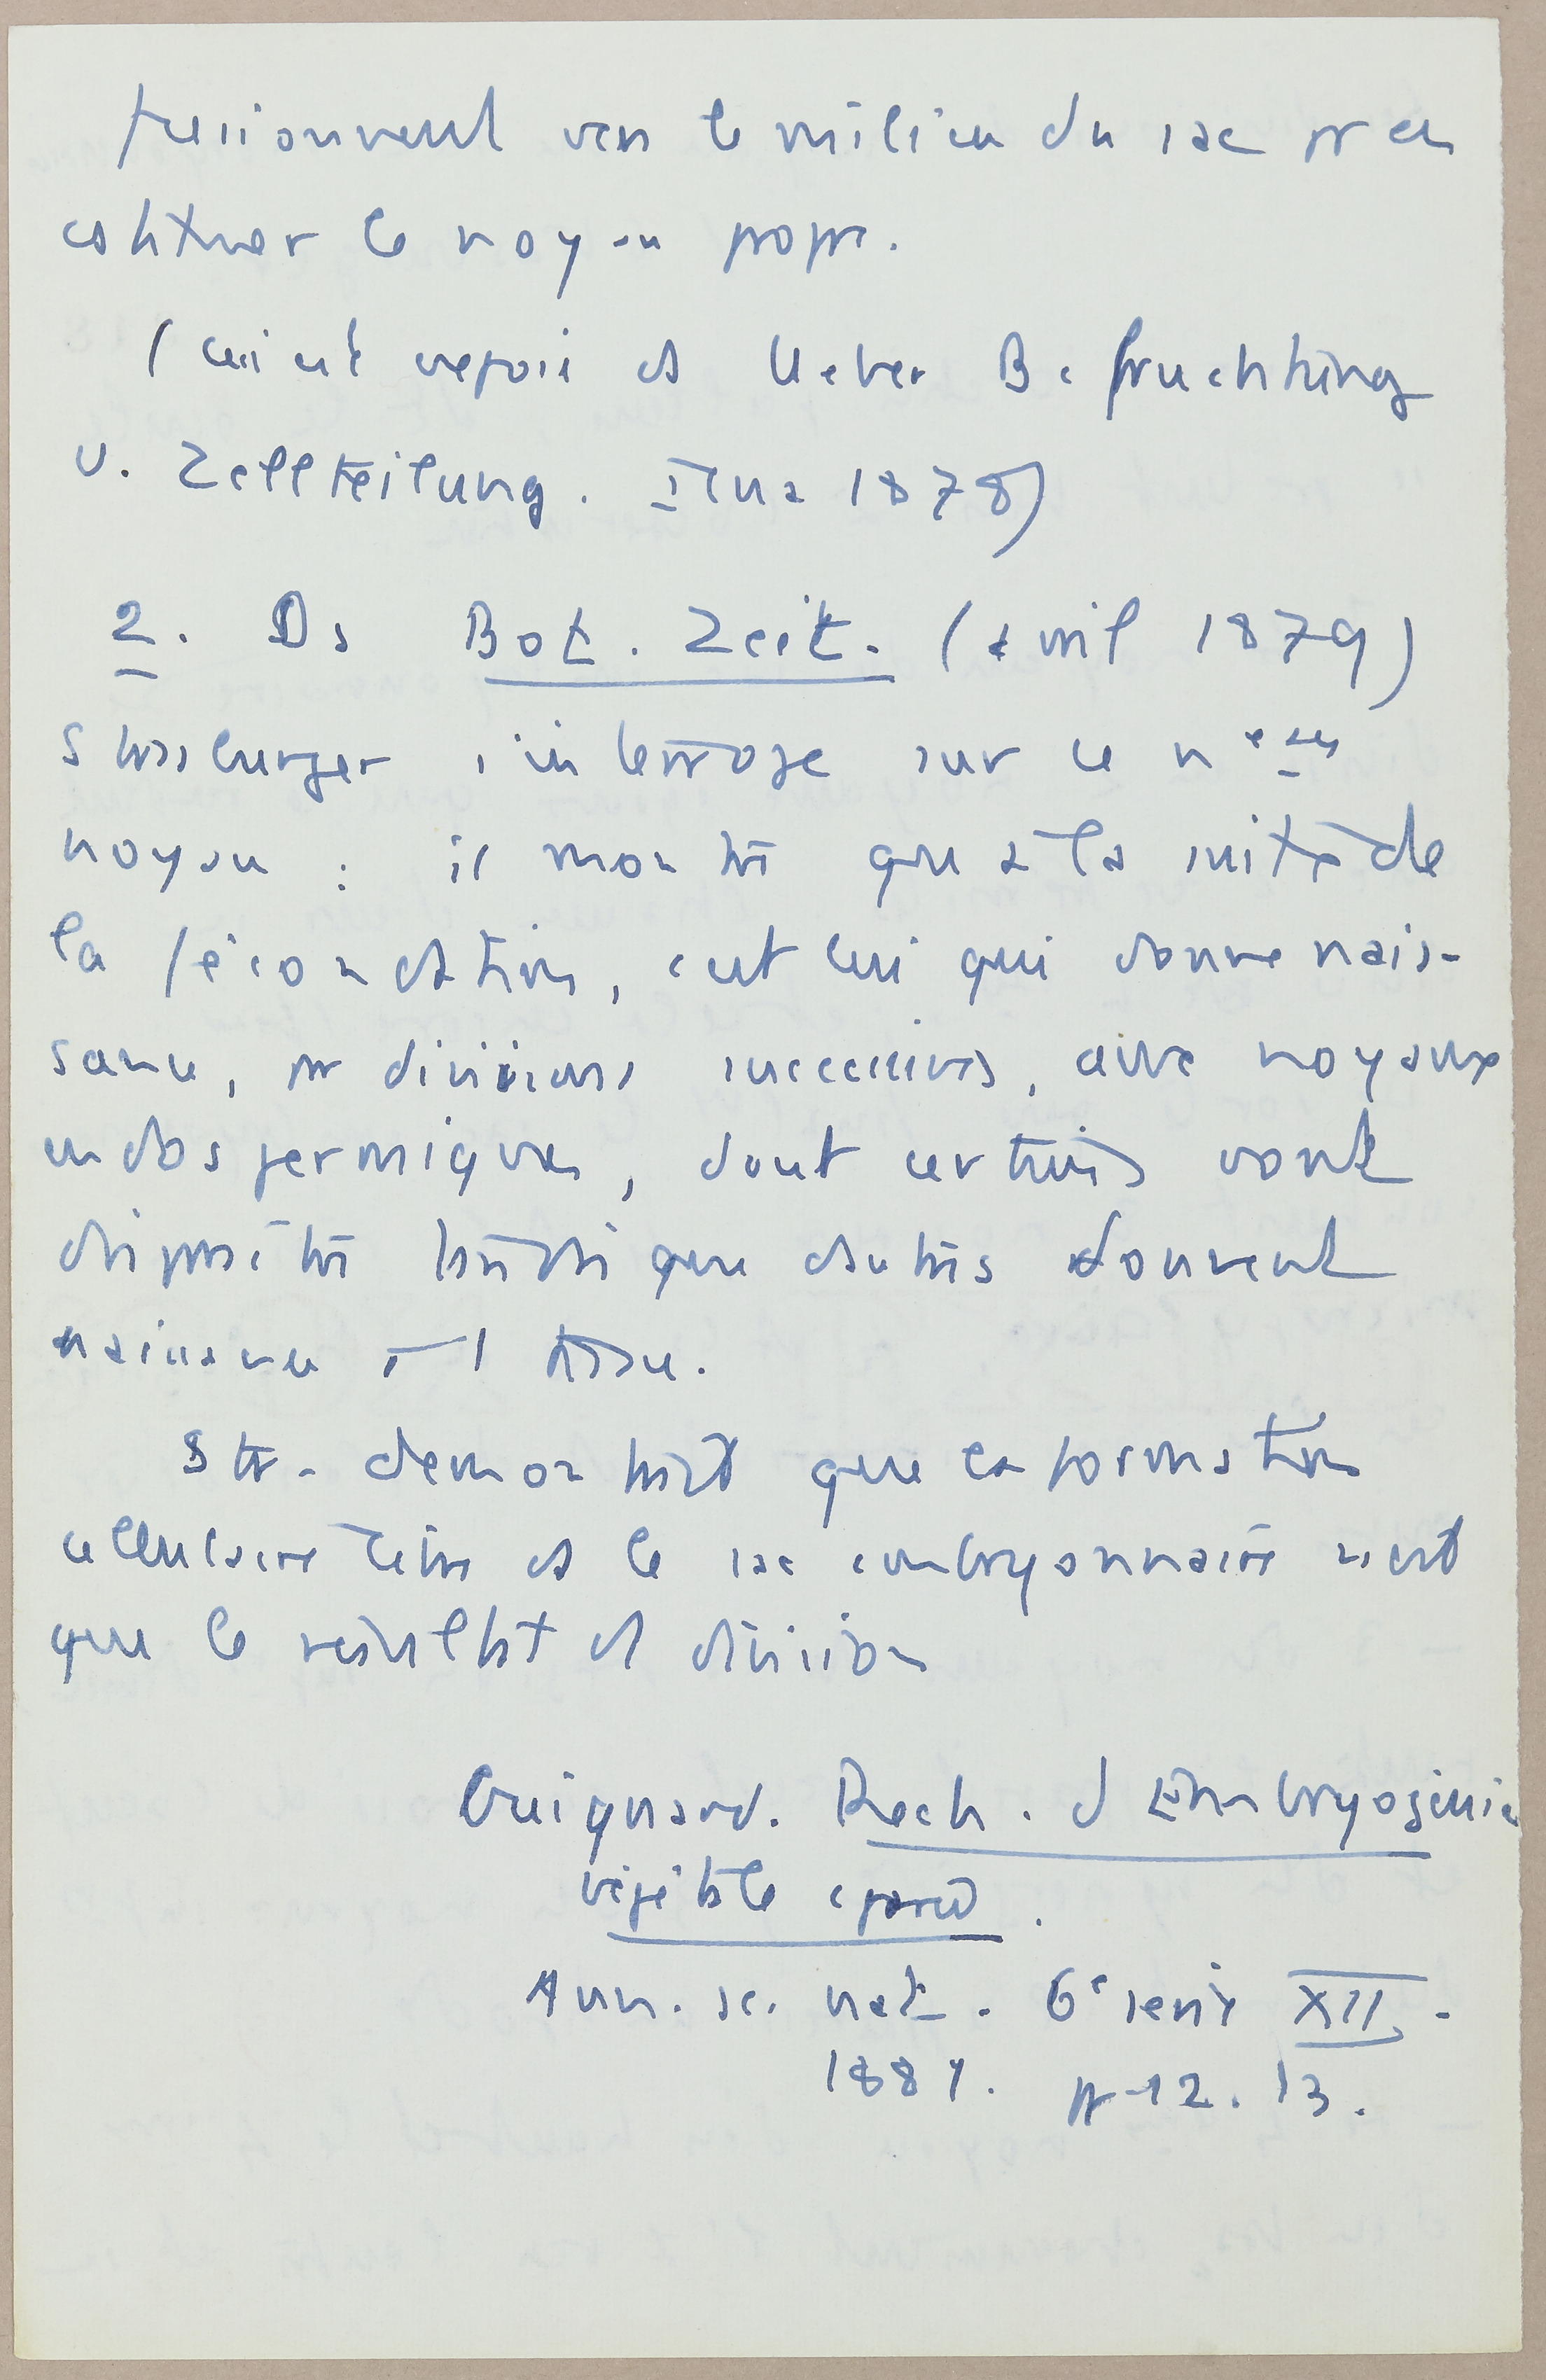 fusionnent vers le milieu du sac pr en
constituer le noyau propre.
(ceci est repris ds Ueber Befruchtung
u. Zellteilung. Iena 1878)
2. Ds Bot. Zeit. (avril 1879)
Strasburger s'interroge sur ce
noyau : il montre que à la suite de
la fécondation, c'est lui qui donne nais-
sance, par divisions successives, aux noyaux
endospermiques, dont certains vont
disparaître tandis que d'autres donnent
naissance à 1 tissu.
Str. démontrait que la formation
cellulaire libre ds le sac embryonnaire n'est
que le résultat de division
Guignard. Rech. d'Embryogénie
végétale comparée.
Ann. sc. nat. 6e série XII.
1881. pp 12. 13.